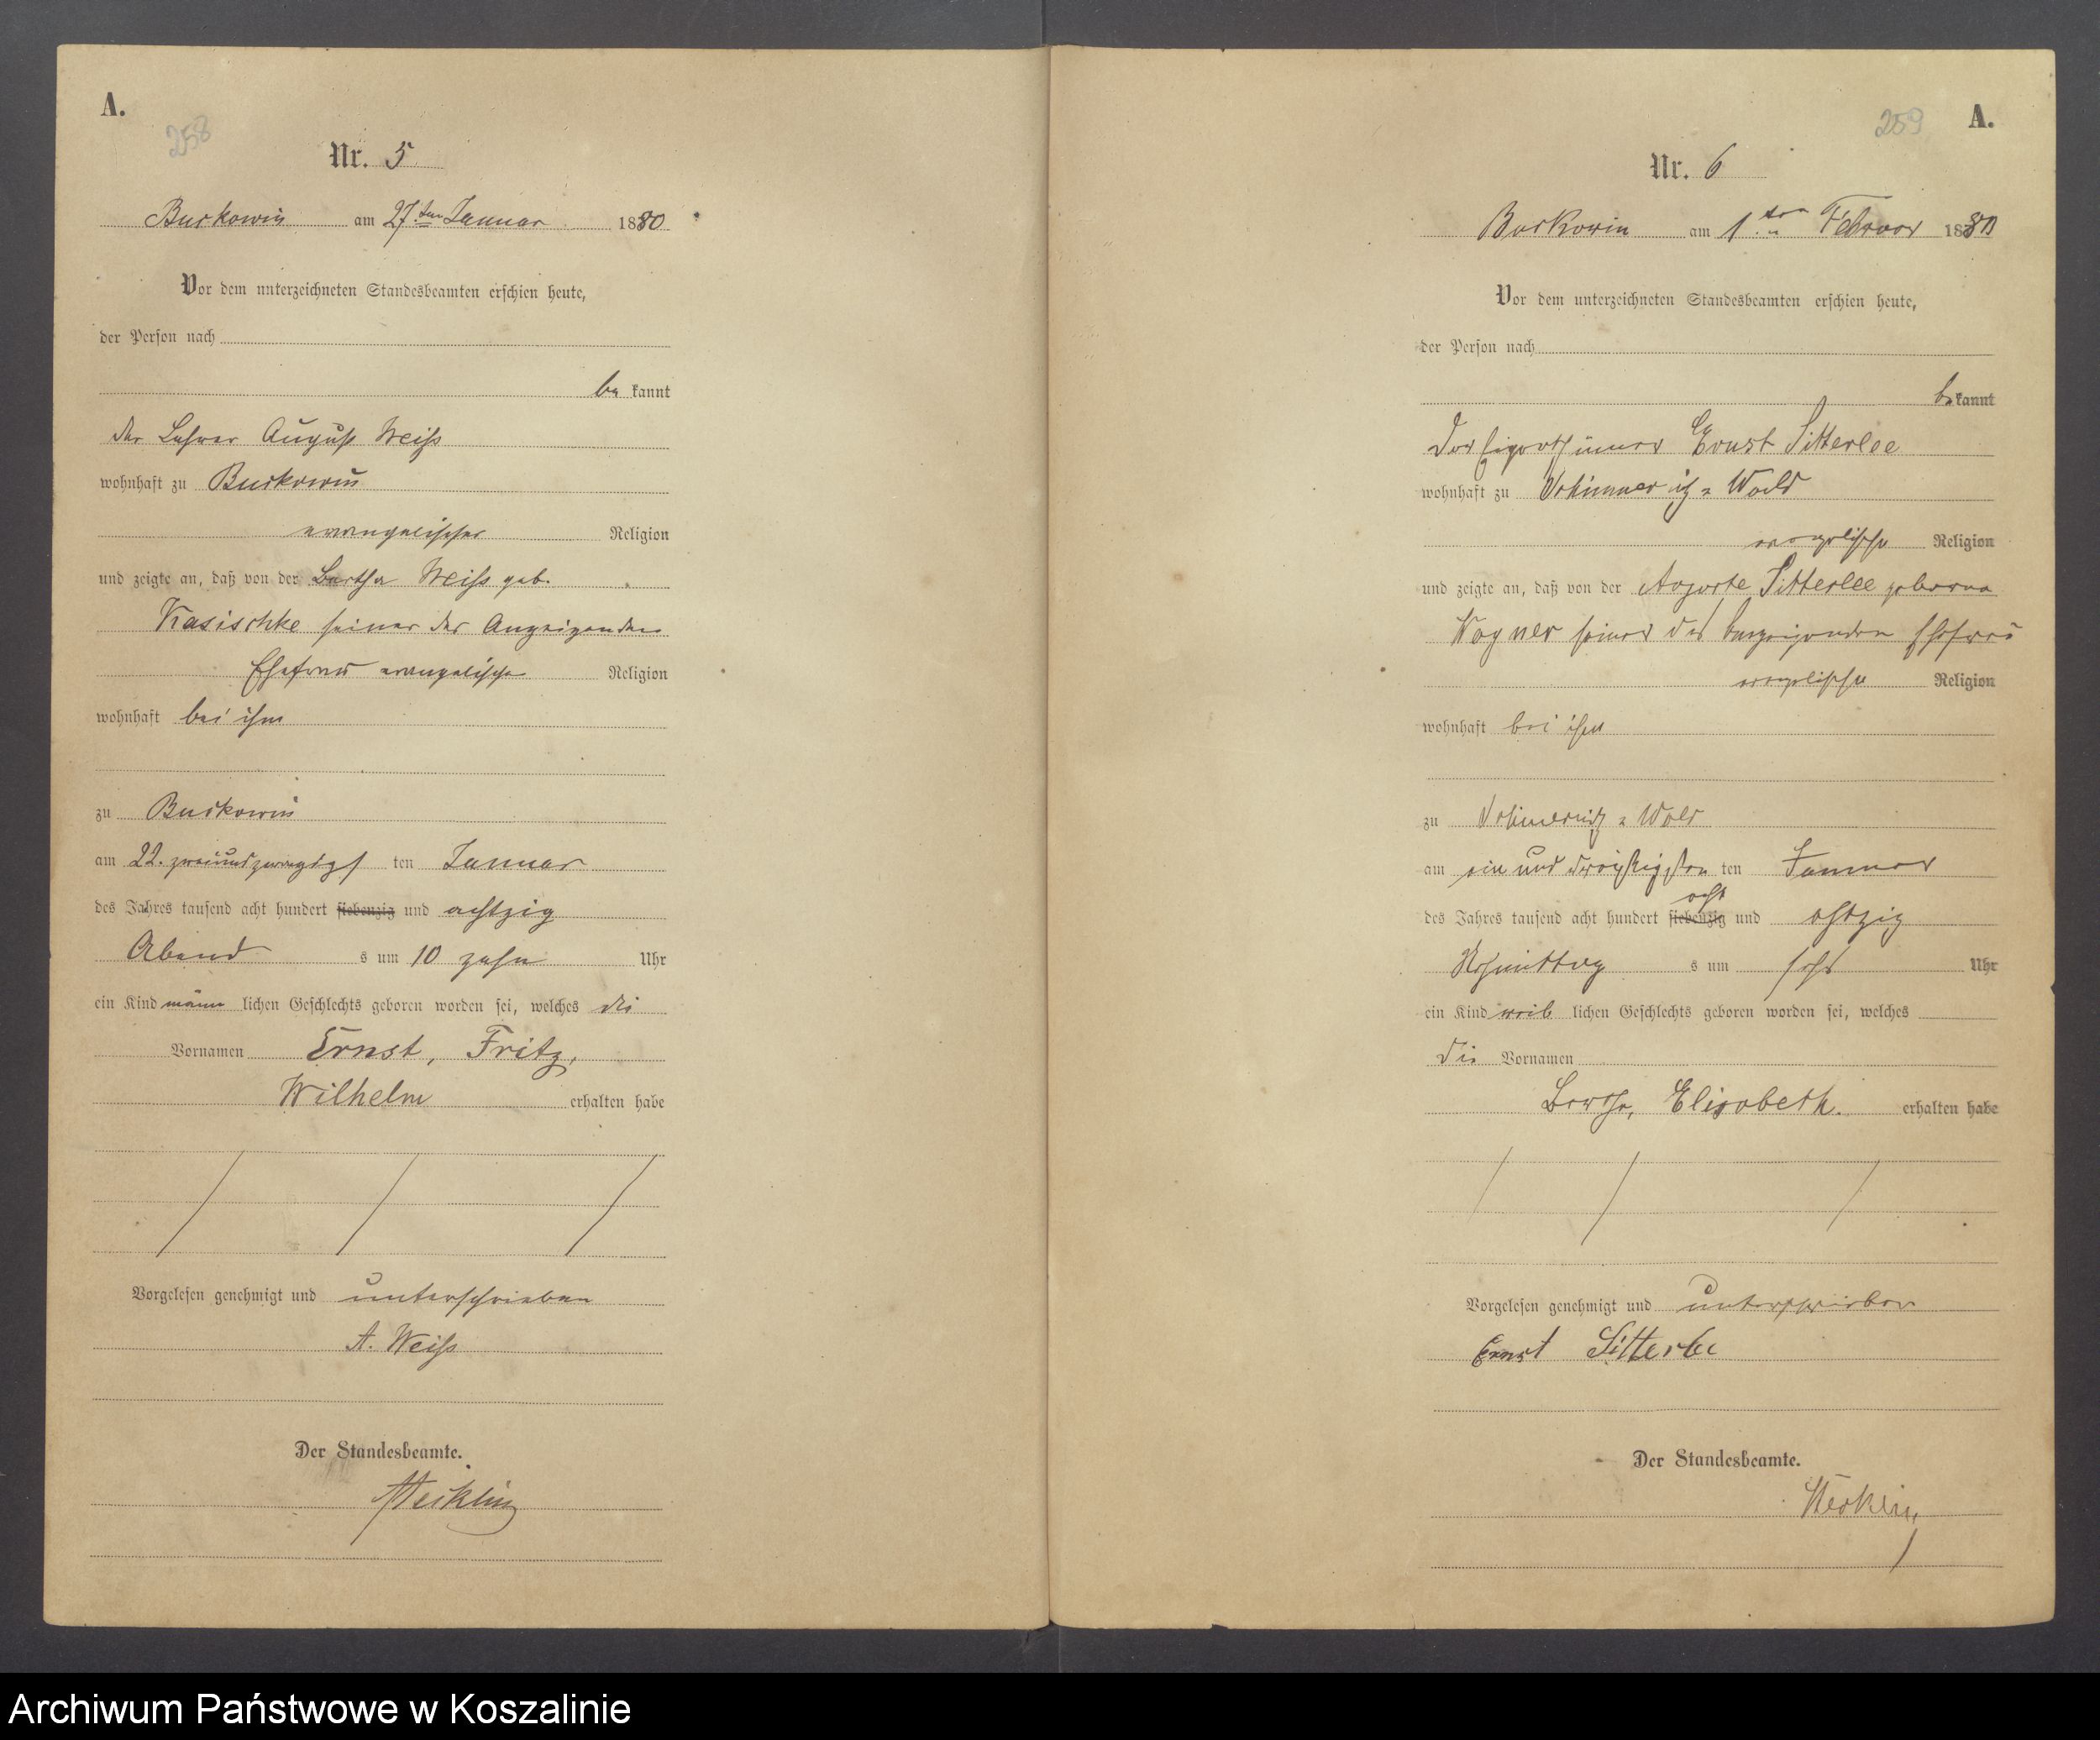 A.
258
Nr. 5
Burkowin am 27.ten Januar 1880
Vor dem unterzeichneten Standesbeamten erschien heute,
der Person nach
be kannt
der Lehrer August Weiß
wohnhaft zu Burkowin
evangelischer Religion
und zeigte an, daß von der Bertha Weiß geb.
Kasischke seiner des Anzeigenden
Ehefrau evangelische Religion
wohnhaft bei ihm
zu Burkowin
am 22. zweiundzwanzigs ten Januar
des Jahres tausend acht hundert siebenzig und achtzig
Abend s um 10 zehn Uhr
ein Kind männ lichen Geschlechts geboren worden sei, welches die
Vornamen Ernst, Fritz,
Wilhelm erhalten habe
Vorgelesen genehmigt und unterschrieben
A. Weiß
Der Standesbeamte.
259
A.
Nr. 6
Burkowin am 1.ten Februar 1880
Vor dem unterzeichneten Standesbeamten erschien heute,
der Person nach
be kannt
Der Eigenthümer Ernst Sitterlee
wohnhaft zu Wald
evangelischer Religion
und zeigte an, daß von der Auguste Sitterlee geborne
Wagner seiner des Anzeigenden Ehefrau
evangelischer Religion
wohnhaft bei ihm
zu Wald
am ein und dreißigsten ten Januar
des Jahres tausend acht hundert siebenzig und achtzig
acht
Nachmittag s um Uhr
ein Kind weib lichen Geschlechts geboren worden sei, welches
die Vornamen
Bertha, Elisabeth. erhalten habe
Vorgelesen genehmigt und unterschrieben
Ernst Sitterlee
Der Standesbeamte.
Archiwum Państwowe w Koszalinie